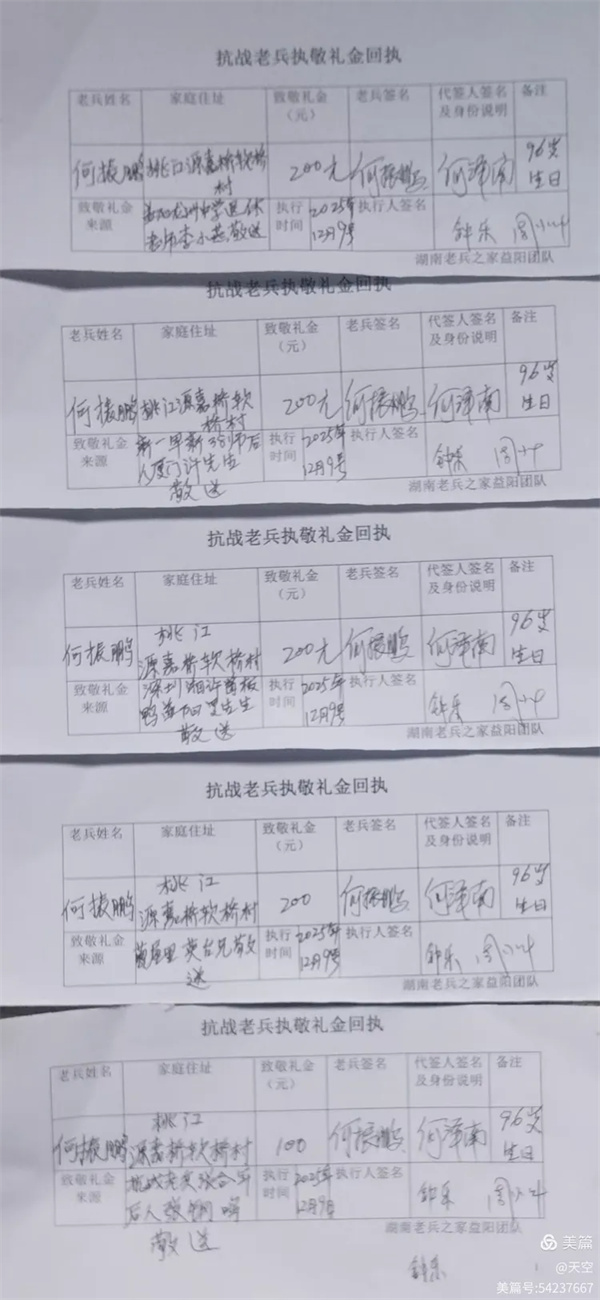 抗战老兵执敬礼金回执
老兵姓名 家庭住址 致敬礼金（元） 老兵签名 代签人签名及身份说明 备注
何振鹏 桃江源嘉桥软桥村 200元 何振鹏 何泽南 96岁生日
致敬礼金来源 益阳龙洲中学退休老师李小燕敬送 执行时间 2025年12月9号 执行人签名 钟乐 周小叶
湖南老兵之家益阳团队
抗战老兵执敬礼金回执
老兵姓名 家庭住址 致敬礼金（元） 老兵签名 代签人签名及身份说明 备注
何振鹏 桃江源嘉桥软桥村 200元 何振鹏 何泽南 96岁生日
致敬礼金来源 新一军新38师后人厦门许先生敬送 执行时间 2025年12月9号 执行人签名 钟乐
湖南老兵之家益阳团队
抗战老兵执敬礼金回执
老兵姓名 家庭住址 致敬礼金（元） 老兵签名 代签人签名及身份说明 备注
何振鹏 桃江源嘉桥软桥村 200元 何振鹏 何泽南 96岁生日
致敬礼金来源 深圳湘 先生敬送 执行时间 2025年12月9号 执行人签名 钟乐
湖南老兵之家益阳团队
抗战老兵执敬礼金回执
老兵姓名 家庭住址 致敬礼金（元） 老兵签名 代签人签名及身份说明 备注
何振鹏 桃江源嘉桥软桥村 200 何振鹏 何泽南 96岁生日
致敬礼金来源 兄敬送 执行时间 2025年12月9号 执行人签名 钟乐 周小叶
湖南老兵之家益阳团队
抗战老兵执敬礼金回执
老兵姓名 家庭住址 致敬礼金（元） 老兵签名 代签人签名及身份说明 备注
何振鹏 桃江源嘉桥软桥村 100 何振鹏 何泽南 96岁生日
致敬礼金来源 抗战老兵 后人 敬送 执行时间 2025年12月9号 执行人签名 钟乐 周小叶
湖南老兵之家益阳团队
钟乐
美篇
@天空
美篇号:54237667